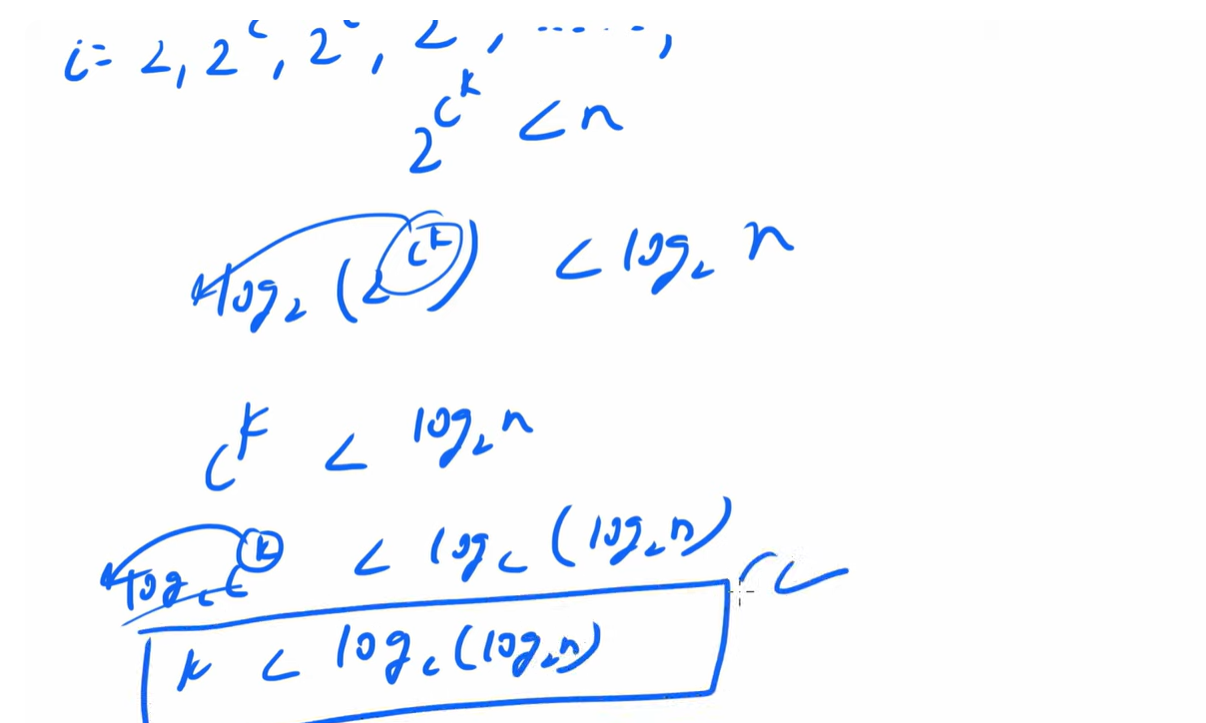 i = 2, 2^c, 2^c, 2, ......,
2^c^k < n
log₂ (2^c^k) < log₂ n
c^k < log₂ n
log_c c^k < log_c (log₂ n)
k < log_c (log₂ n)